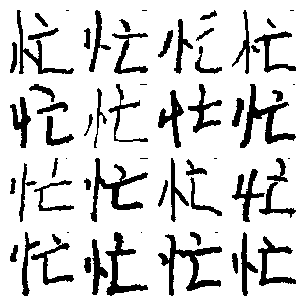 忙忙忙忙
忙忙忙忙
忙忙忙忙
忙忙忙忙